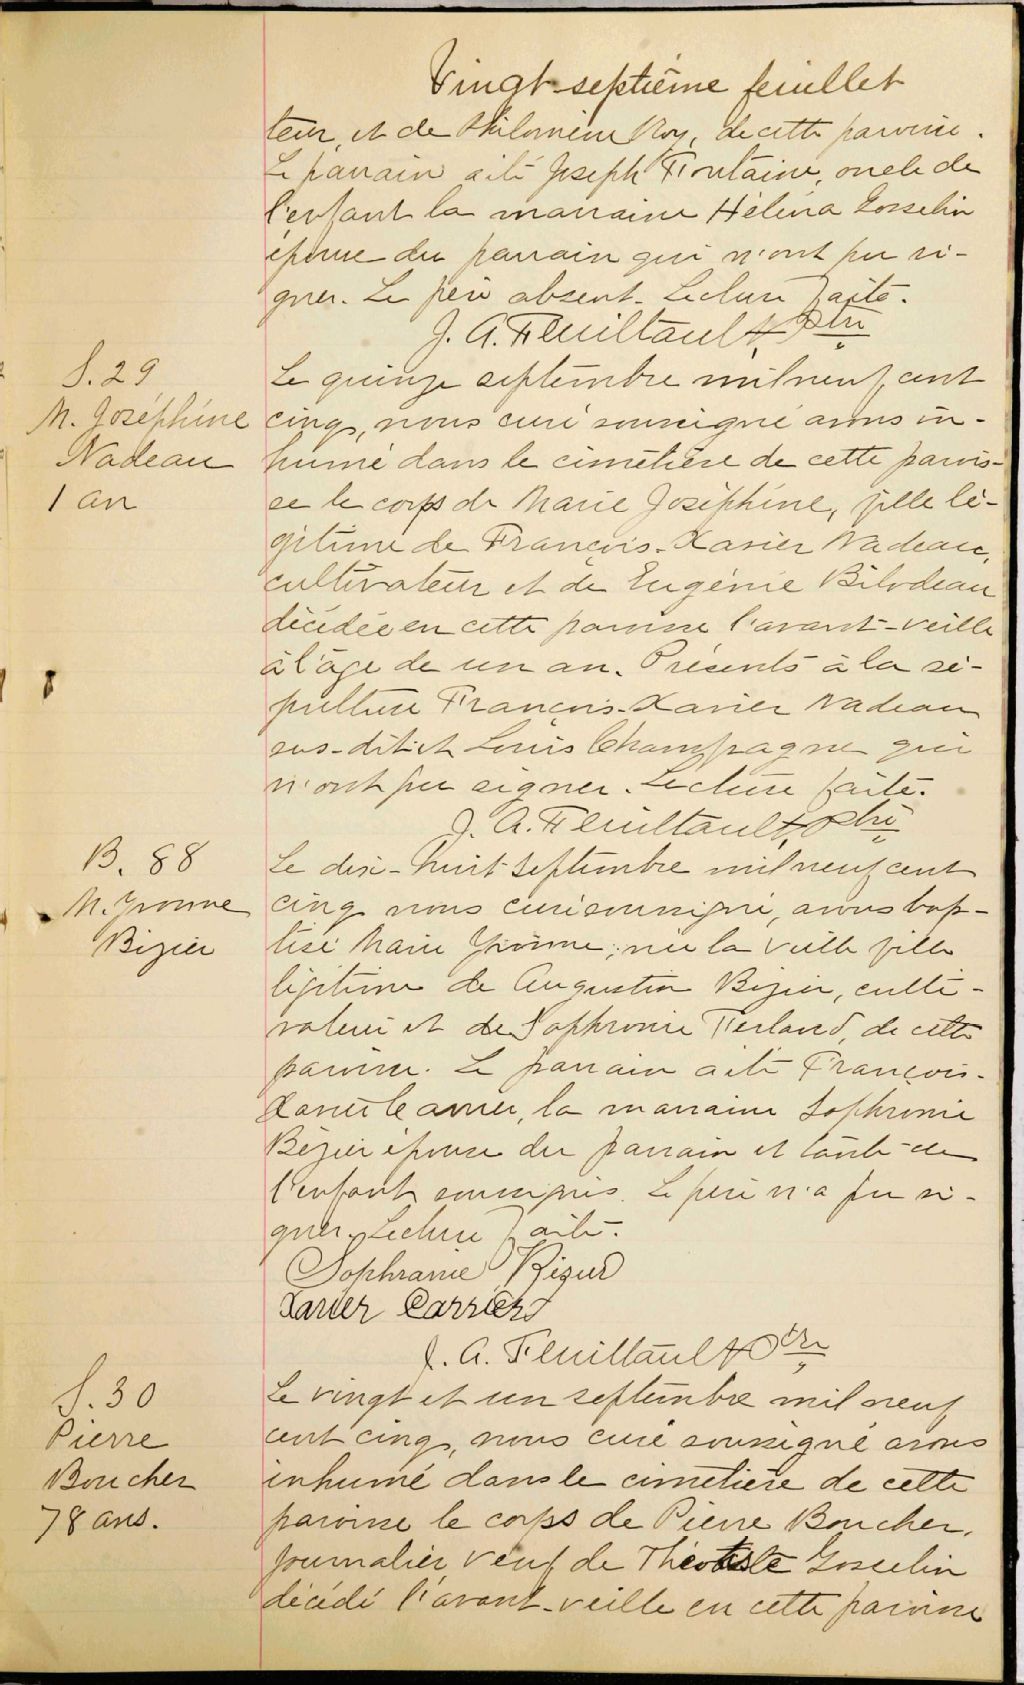 Vingt-septième feuillet
teur, et de Philomène Roy, de cette paroisse.
Le parrain a été Joseph Fontaine, oncle de
l'enfant la marraine Héléna Gosselin
épouse du parrain qui n'ont pu si-
gner. Le père absent. Lecture faite.
J. A. Feuiltault Ptre
S. 29
M. Joséphine
Nadeau
1 an
Le quinze septembre mil neuf cent
cinq, nous curé soussigné avons in-
humé dans le cimetière de cette parois-
se le corps de Marie Joséphine, fille lé-
gitime de François-Xavier Nadeau,
cultivateur et de Eugénie Bilodeau
décédée en cette paroisse l'avant-veille
à l'âge de un an. Présents à la sé-
pulture François-Xavier Nadeau
sus-dit et Louis Champagne qui
n'ont pu signer. Lecture faite.
J. A. Feuiltault Ptre
B. 88
M. Yvonne
Bizier
Le dix-huit septembre mil neuf cent
cinq nous curé soussigné, avons bap-
tisé Marie Yvonne, née la veille fille
légitime de Augustin Bizier, culti-
vateur et de Sophronie Ferland, de cette
paroisse. Le parrain a été François-
Xavier, la marraine Sophronie
Bizier épouse du parrain et tante de
l'enfant soussignés. Le père n'a pu si-
gner. Lecture faite.
Sophranie Bizier
Xavier Carrier
J. A. Feuiltault Ptre
S. 30
Pierre
Boucher
78 ans.
Le vingt et un septembre mil neuf
cent cinq, nous curé soussigné avons
inhumé dans le cimetière de cette
paroisse le corps de Pierre Boucher,
journalier, veuf de Théotiste Gosselin
décédé l'avant-veille en cette paroisse